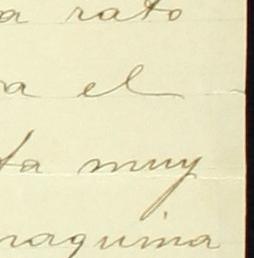 a rato
a el
ta muy
naquina